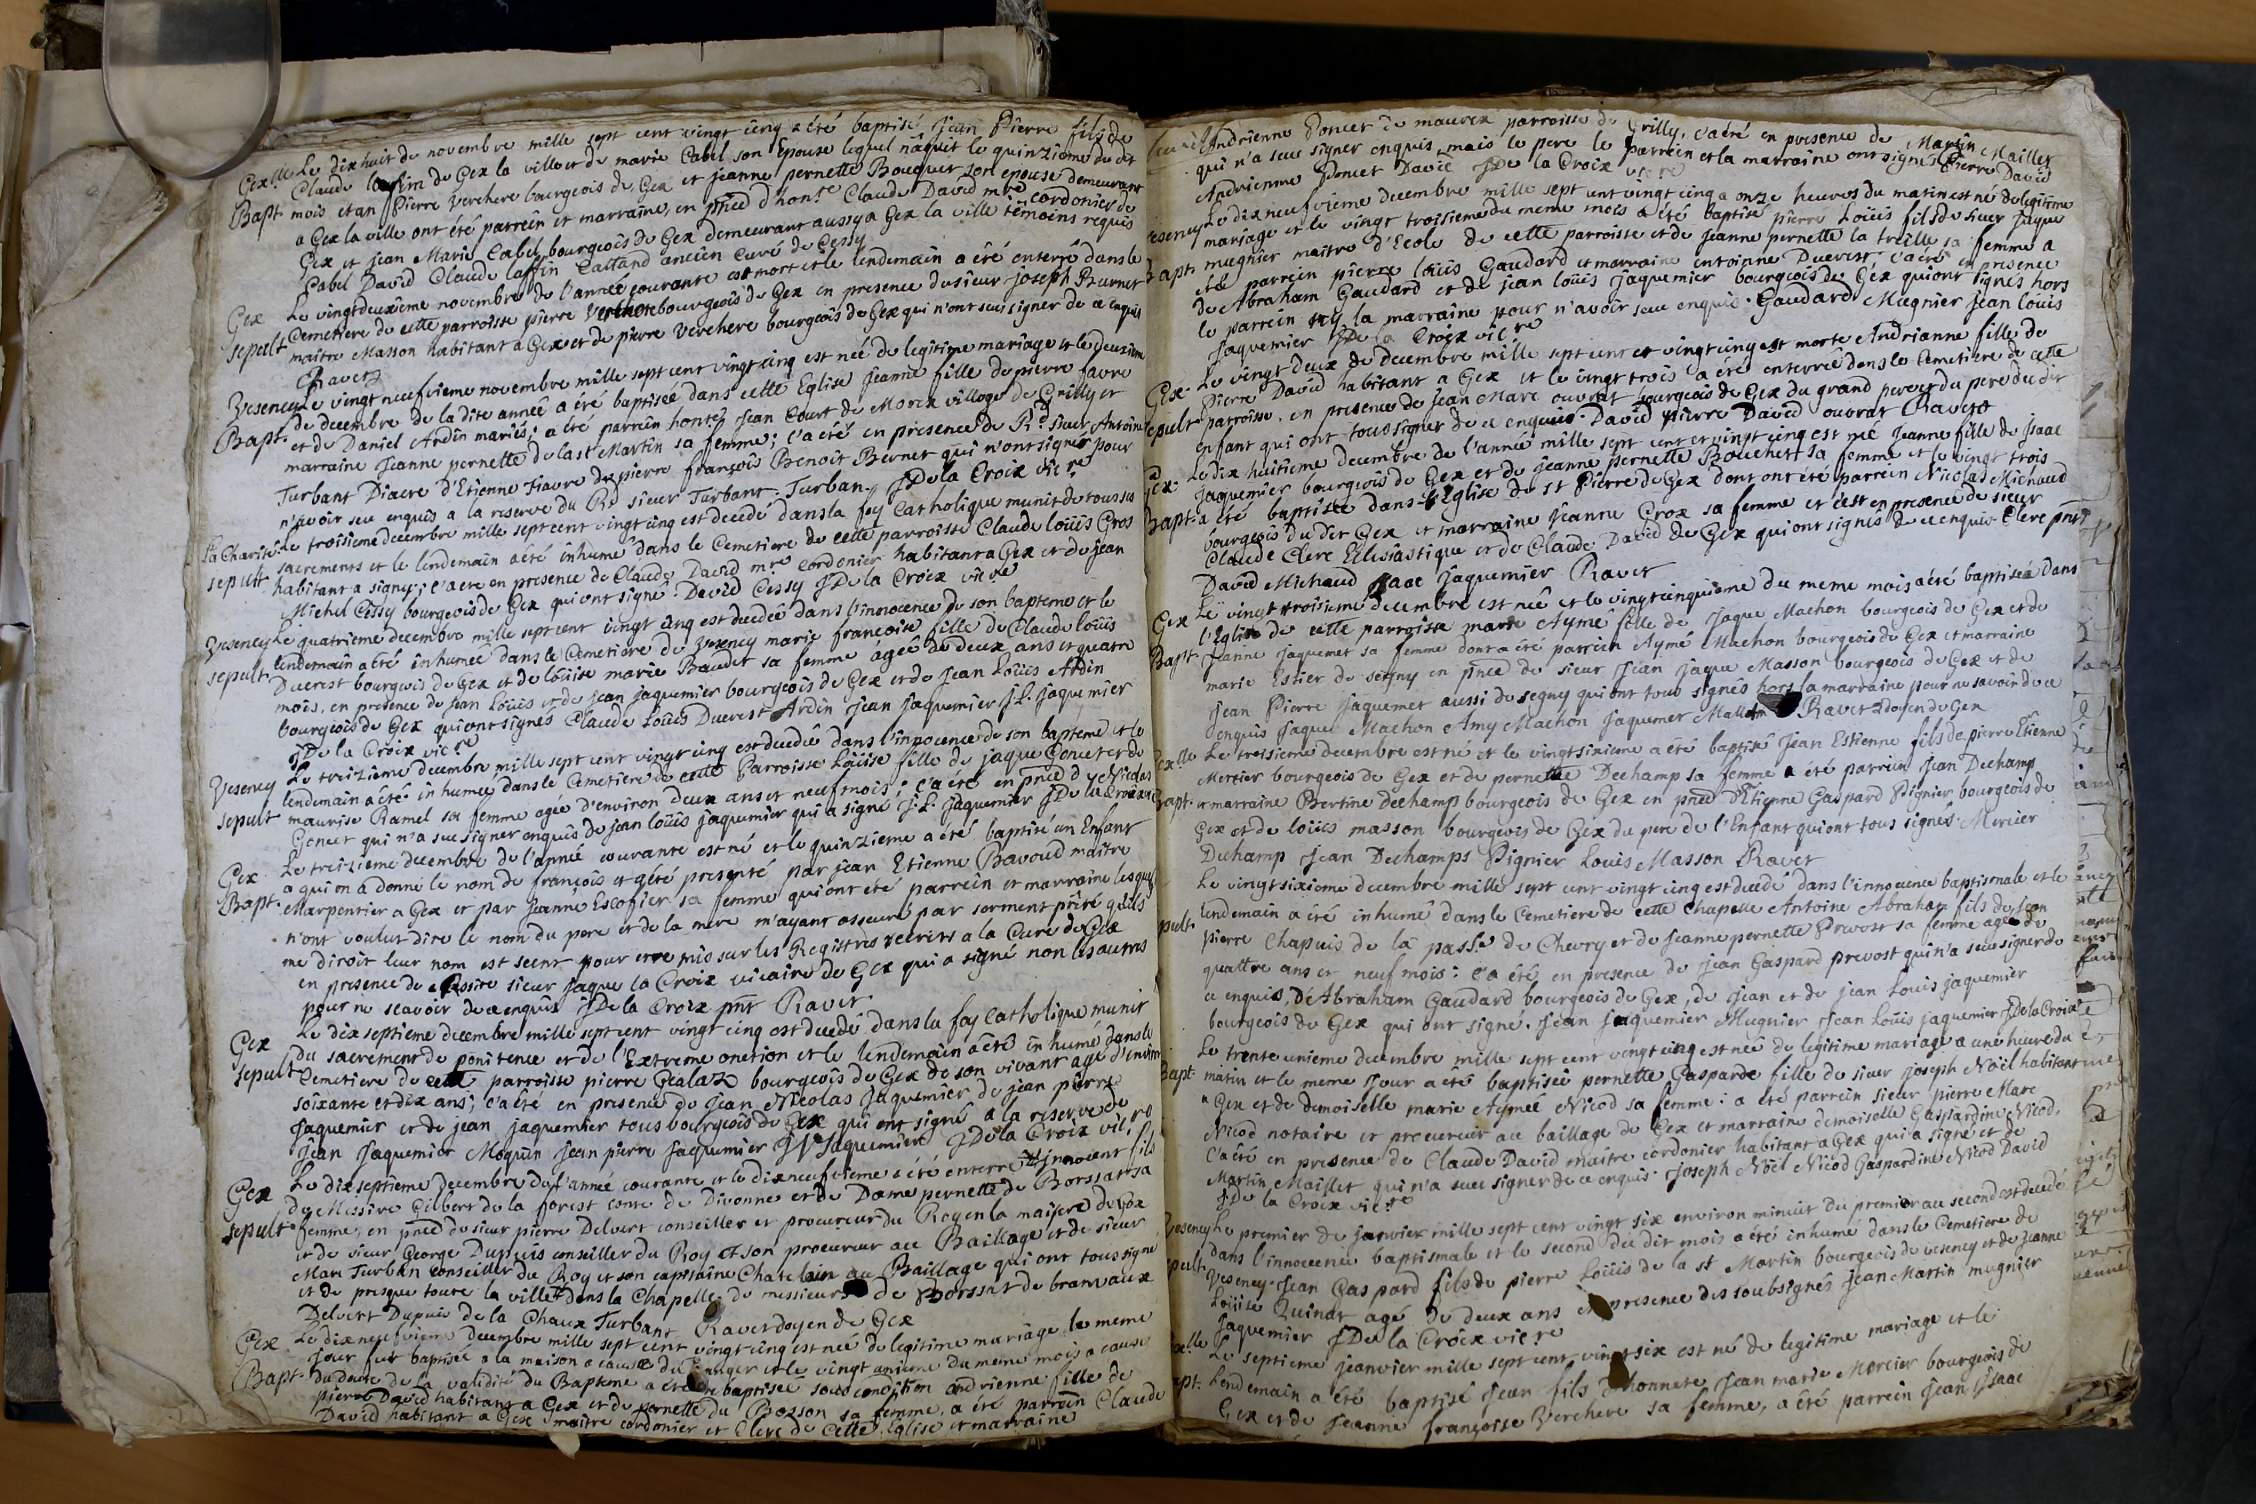 Gex Le dixhuit de novembre mille sept cent vingt cinq a été baptisé Jean Pierre fils de
Claude laffin de Gex la ville et de marie Cabil son Epouse lequel náquit le quinzieme du dit
Bapt. mois et an Pierre Verchere bourgeois de Gex et jeanne pernette Bouquet son epouse demeurant
a Gex la ville ont été parrein et marraine, en pñce d'hon.te Claude David mre cordonier de
Gex et jean Marie Cabil bourgeois de Gex demeurant aussy a Gex la ville témoins requis
Cabil David Claude laffin Castand ancien curé de Cessy
Gex Le vingtdeuxieme novembre de l'année courante est mort et le lendemain a été enterré dans le
Cemetiere de cette parroisse pierre Verchere bourgeois de Gex en presence du sieur joseph Burnet
sepult maitre Masson habitant a Gex et de pierre Verchere bourgeois de Gex qui n'ont seu signer de ce enquis
Ravet
Vesency Le vingt neufvieme novembre mille sept cent vingt cinq est née de legitime mariage et le deuxieme
de decembre de la dite année a été baptisée dans cette Eglise Jeanne fille de pierre favre
Bapt. et de Daniel Ardin mariés; a été parrein honte Jean Court de Morex village de Grilly et
marraine Jeanne pernette de la st Martin sa femme; c'a été en presence de Rd sieur Antoine
Turbant Diacre d'Etienne fiavre de pierre françois Benoit Bernet qui n'ont signer pour
n'avoir seu enquis a la reserve du Rd sieur Turbant. Turban. JDe la Croix vic.re
La Charité Le troisieme decembre mille sept cent vingt cinq est decedé dans la foy Catholique munit de tous ses
sacrements et le lendemain a été inhumé dans le Cemetiere de cette parroisse Claude loüis Gros
sepult habitant a signy; c'a ete en presence de Claude David mre cordonier habitant a Gex et de jean
Michel Cessy bourgeois de Gex qui ont signé. David Cessy JDe la Croix vicre
Vesency Le quatrieme decembre mille sept cent vingt cinq est decedée dans l'innocence de son bapteme et le
lendemain a été inhumée dans le Cemetiere de Vesency marie francoise fille de Claude loüis
sepult. Duerest bourgeois de Gex et de loüise marie Baudet sa femme agée de deux ans et quatre
mois, en presence de jean loüis et de jean jaquemier bourgeois de Gex et de Jean Loüis Ardin
bourgeois de Gex qui ont signés Claude Loüis Duerest Ardin Jean Jaquemier J.L. Jaquemier
JDe la Croix vic.re
Vesency Le treizieme decembre mille sept cent vingt cinq est decedée dans l'innocence de son bapteme et le
lendemain a été inhumée dans le Cemetiere de cette Parroisse Loüise fille de jaque Goncet et de
sepult maurise Ramel sa femme agée d'environ deux ans et neuf mois; c'a été en pñce de Nicolas
Goncet qui n'a seu signer enquis de jean loüis jaquemier qui a signé J.L. Jaquemier JDe la Croix vic
Gex Le treizieme decembre de l'année courante est né et le quinzieme a été baptisé un Enfant
a qui on a donné le nom de françois et a été presenté par jean Etienne Bavoud maitre
Bapt. Charpentier a Gex et par Jeanne Escofier sa femme qui ont été parrein et marraine lesquels
n'ont voulut dire le nom du pere et de la mere m'ayant asseuré par serment prété qu'ils
me diroit leur nom est secret pour etre mis sur les Registres secrets a la Cure de Gex
en presence de Messire sieur Jaque la Croix vicaire de Gex qui a signé non les autres
pour ne scavoir de ce enquis JDe la Croix pñt Ravet.
Gex Le dix septieme decembre mille sept cent vingt cinq est decedé dans la foy Catholique munit
du sacrement de penitence et de l'Extreme onction et le lendemain a été inhumé dans le
sepult Cemetiere de cette parroisse pierre Gealaz bourgeois de Gex de son vivant agé d'environ
soixante et dix ans; c'a été en presence de Jean Nicolas Jaquemier de jean pierre
Jaquemier et de jean jaquemier tous bourgeois de Gex qui ont signé a la reserve de
Jean Jaquemier Moquin Jean pierre Jaquemier JN Jaquemier JDe la Croix vic.re
Gex Le dix septieme decembre de l'année courante et le dixneufvieme a été enterré innocent fils
de Messire Gilbert de la forest comte de Divonne et de Dame pernette de Borssat sa
sepult femme, en pñce du sieur pierre Delvert conseiller et procureur du Roy en la maiserie de Gex
et de sieur George Dupuis conseiller du Roy et son procureur au Baillage et de sieur
Marc Turban conseiller du Roy et son capitaine Chatelain au Baillage qui ont tous signé
et de presque toute la ville dans la Chapelle de messieurs de Borssat de branvaux
Delvert Dupuis de la Chaux Turbant Ravet doyen de Gex
Gex Le dixneufvieme decembre mille sept cent vingt cinq est née de legitime mariage, le meme
jour fut baptisée a la maison a cause du danger et le vingt unieme du meme mois a cause
Bapt. du doute de la validité du Bapteme a été rebaptisée sous condition andrienne fille de
pierre David habitant a Gex et de pernette du Bosson sa femme, a été parrein Claude
David habitant a Gex maitre cordonier et Clerc de cette Eglise et marraine
Andrienne Poncet de maurex parroisse de Grilly, c'a été en presence de Martin Maillet
qui n'a seue signer enquis mais le pere le parrein et la marraine ont signé Pierre David
Andrienne Poncet David JDe la Croix vicre
Vesency Le dixneufvieme decembre mille sept cent vingt cinq a onze heures du matin est né de legitime
mariage et le vingt troisieme du meme mois a été baptisé pierre Loüis fils de sieur Jaque
Bapt. mugnier maitre d'Ecole de cette parroisse et de Jeanne pernette la treille sa femme a
été parrein pierre loüis Gaudard et marraine antoinne Duerest, c'a été en presence
de Abraham Gaudard et de jean loüis Jaquemier bourgeois de Gex qui ont signés hors
le parrein et la marraine pour n'avoir seu enquis. Gaudard Mugnier Jean louis
Jaquemier JDe la Croix vic.re
Gex. Le vingt deux de decembre mille sept cent et vingt cinq est morte Andrianne fille de
Pierre David habitant a Gex et le vingt trois a été enterrée dans le Cemetiere de cette
sepult parroisse, en presence de Jean Marc ouvrat bourgeois de Gex du grand pere et du pere du dit
enfant qui ont tous signer de ce enquis. David Pierre David ouvrat Ravet
Gex. Le dix huitieme decembre de l'année mille sept cent et vingt cinq est née Jeanne fille de Jsaac
Jaquemier bourgeois de Gex et de Jeanne pernette Bouchet sa femme et le vingt trois
Bapt. a été baptisée dans l'Eglise de st Pierre de Gex dont ont été parrein Nicolas Michaud
bourgeois du dit Gex et marraine Jeanne Croz sa femme et c'est en presence de sieur
Claude Clerc Eclesiastique et de Claude David de Gex qui ont signés de ce enquis Clerc pñt
David Michaud Jsaac Jaquemier Ravet
Gex Le vingt troisieme decembre est née et le vingtcinquieme du meme mois a été baptisée dans
l'Eglise de cette parroisse marie Aymé fille de Jaque Machon bourgeois de Gex et de
Bapt. Jeanne Jaquemet sa femme dont a été parrein Aymé Machon bourgeois de Gex et marraine
marie Estier de segny en pñce de sieur Jean jaque Masson bourgeois de Gex et de
Jean Pierre Jaquemet aussi de segny qui ont tous signés hors la marraine pour ne savoir de ce
enquis Jaque Machon Amy Machon Jaquemet Ravet doyen de Gex
Le troisieme decembre est né et le vingtsixieme a été baptisé Jean Estienne fils de pierre Etienne
Mercier bourgeois de Gex et de pernette Dechamp sa femme a été parrein Jean Dechamp
Bapt. et marraine Bertine Dechamp bourgeois de Gex en pñce d'Etienne Gaspard Pignier bourgeois de
Gex et de loüis masson bourgeois de Gex du pere de l'Enfant qui ont tous signés Mercier
Duchamp Jean Dechamps Pignier Louis Masson Ravet
Le vingtsixieme decembre mille sept cent vingt cinq est decedé dans l'innocence baptismale et le
lendemain a été inhumé dans le Cemetiere de cette Chapelle Antoine Abraham fils de Jean
pult. pierre Chapuis de la passe de Chevry et de Jeanne pernette Prevost sa femme agé de
quattre ans et neuf mois: c'a été en presence de jean Gaspard prevost qui n'a seue signer de
ce enquis, de Abraham Gaudard bourgeois de Gex, de Jean et de jean Louis jaquemier
bourgeois de Gex qui ont signé. Jean Jaquemier Mugnier Jean Loüis jaquemier JDe la Croix
Le trente unieme decembre mille sept cent vingt cinq est née de legitime mariage a une heure du
Bapt. matin et le meme jour a été baptisée pernette Gasparde fille de sieur joseph Noël habitant
a Gex et de demoiselle marie Aymée Nicod sa femme: a été parrein sieur pierre Marc
Nicod notaire et procureur au baillage de Gex et marraine demoiselle Gaspardine Nicod,
C'a été en presence de Claude David maitre cordonier habitant a Gex qui a signé et de
Martin Maillet qui n'a seue signer de ce enquis. Joseph Noël Nicod Gaspardine Nicod David
JDe la Croix vic.re
Vesency Le premier de janvier mille sept cent vingt six environ minuit du premier au second est decedé
dans l'innocence baptismale et le second du dit mois a été inhumé dans le Cemetiere de
pult. Vesency Jean Gaspard fils de pierre Loüis de la st Martin bourgeois de vesency et de Jeanne
Loüise Quinat agé de deux ans en presence des soubsignés Jean Martin mugnier
Jaquemier JDe la Croix vic.re
Le septieme jeanvier mille sept cent vingt six est né de legitime mariage et le
lendemain a été baptisé Jean fils d'honnete Jean marie Mercier bourgeois de
Gex et de Jeanne françoise Verchere sa femme, a été parrein Jean Jsaac